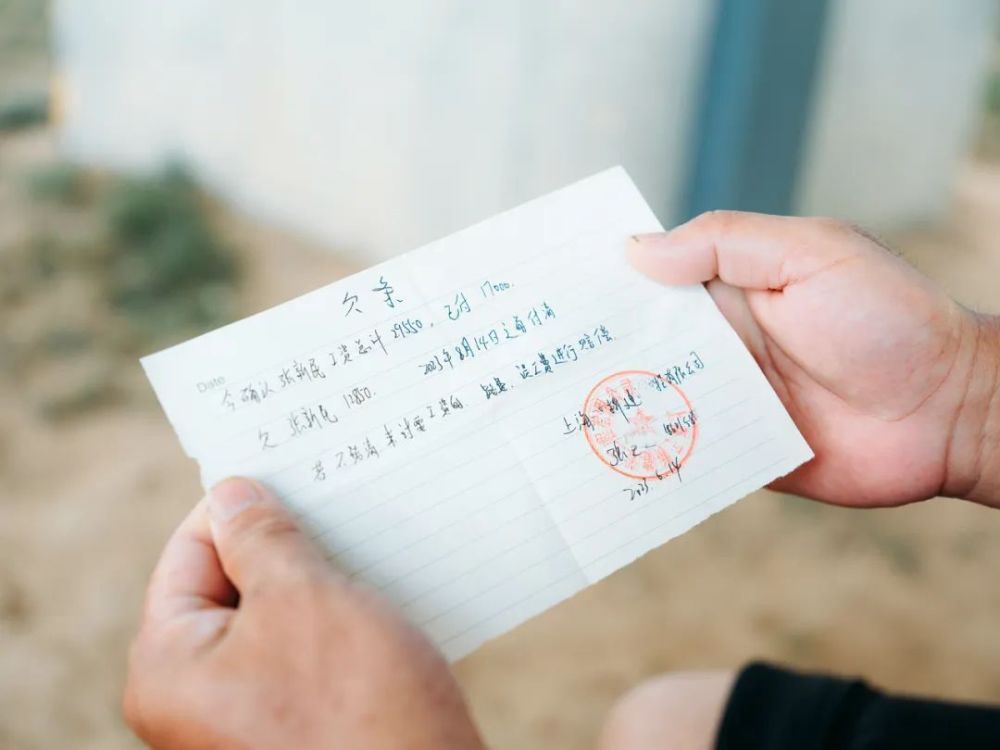 欠条
Date
今确认张新民工资总计29850,已付17000.
欠张新民12850. 2023年8月14日之前付清
若不结清来讨要工资的 路费、误工费进行赔偿.
上海 建 有限公司
2023.6.14